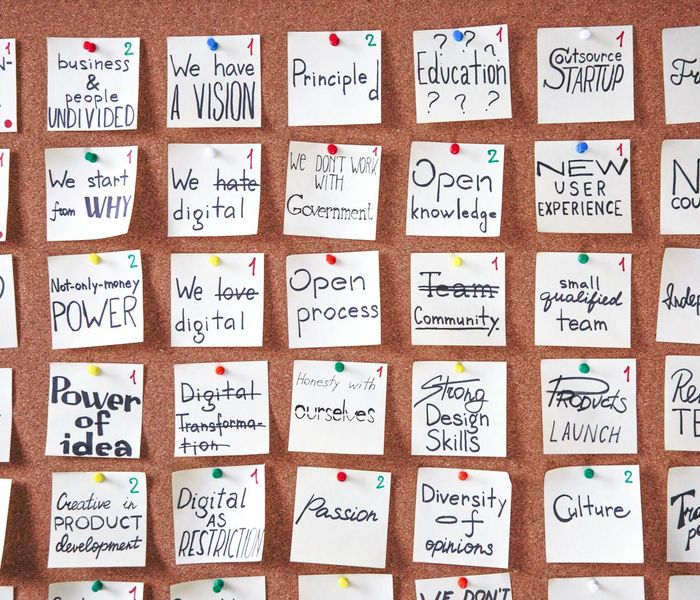 1
2
business
&
people
UNDIVIDED
1
We have
A VISION
2
Principled
1
? ? ?
Education
? ? ?
1
Outsource
STARTUP
1
We start
from WHY
1
We hate
digital
1
WE DON'T WORK
WITH
Government
2
Open
knowledge
1
NEW
USER
EXPERIENCE
2
Not-only-money
POWER
1
We love
digital
Open
process
1
Team
Community
1
small
qualified
team
1
Power
of
idea
Digital
Transforma-
tion
1
Honesty with
ourselves
Strong
Design
Skills
1
Products
LAUNCH
2
Creative in
PRODUCT
development
1
Digital
AS
RESTRICTION
2
Passion
Diversity
of
opinions
2
Culture
1
WE DON'T